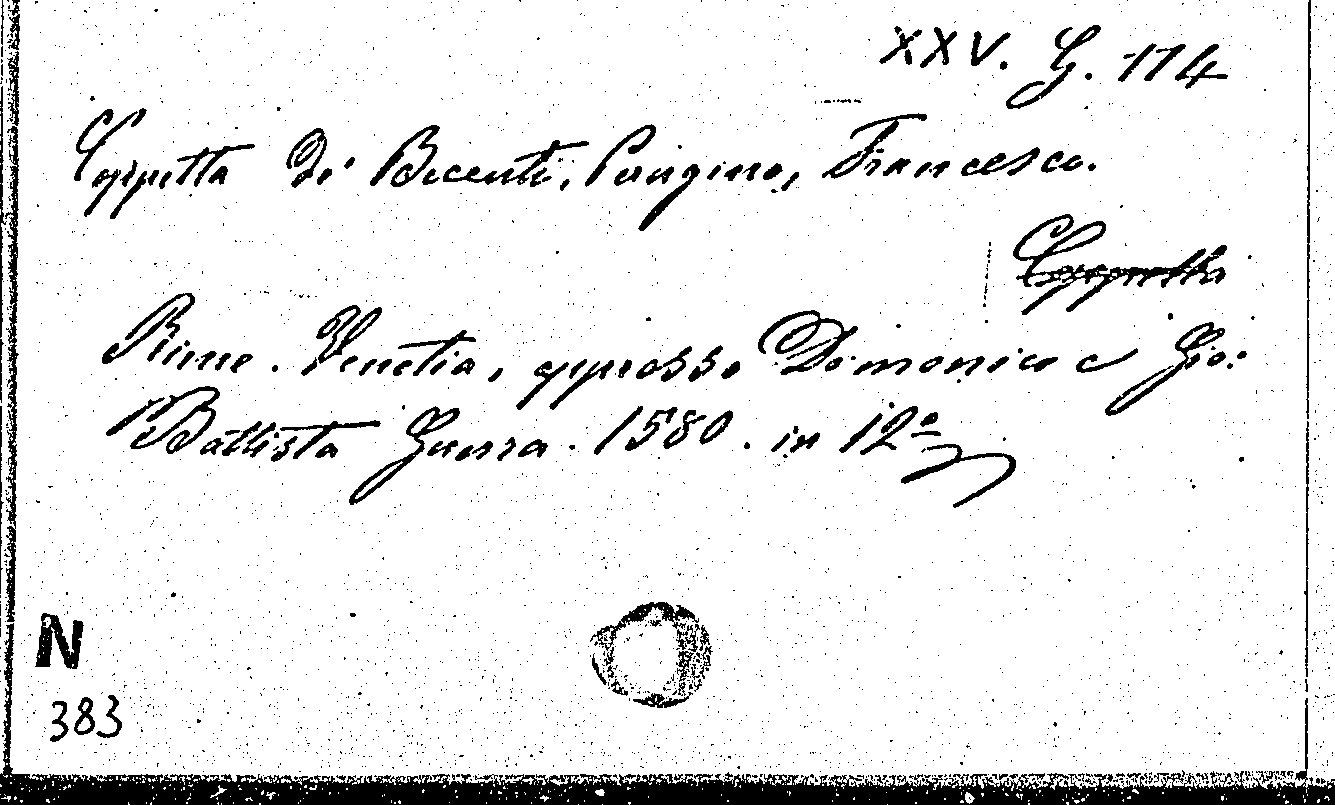 XXV. G. 174
Coppetta de' Beccuti, Perugino, Francesco.
Coppetta
Rime. Venetia, appresso Domenico e Gio:
Battista Guerra. 1580. in 12º
N
383